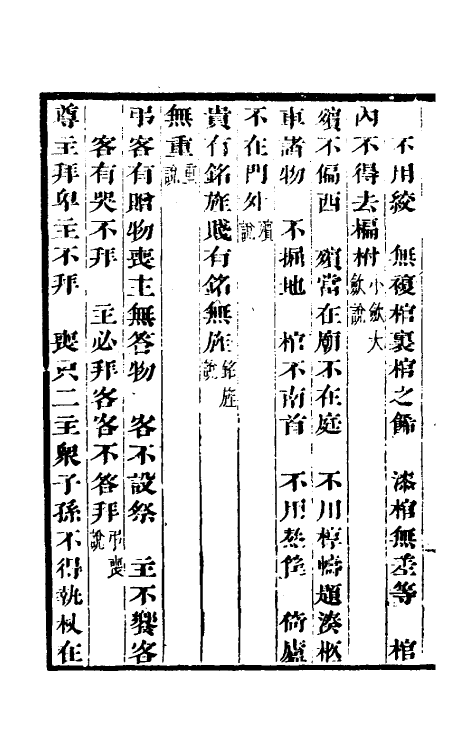 不用絞　無複棺裏棺之飾　漆棺無差等　棺
內不得去楄柎小斂大斂說
殯不偏西　殯當在廟不在庭　不用椁幬題湊柩
車諸物　不掘地　棺不南首　不用熬　倚廬
不在門外殯說
貴有銘旌賤有銘無旌銘旌說
無重重說
弔客有贈物喪主無答物　客不設祭　主不饗客
客有哭不拜　主必拜客客不答拜弔喪說
尊主拜卑主不拜　喪只二主衆子孫不得執杖在